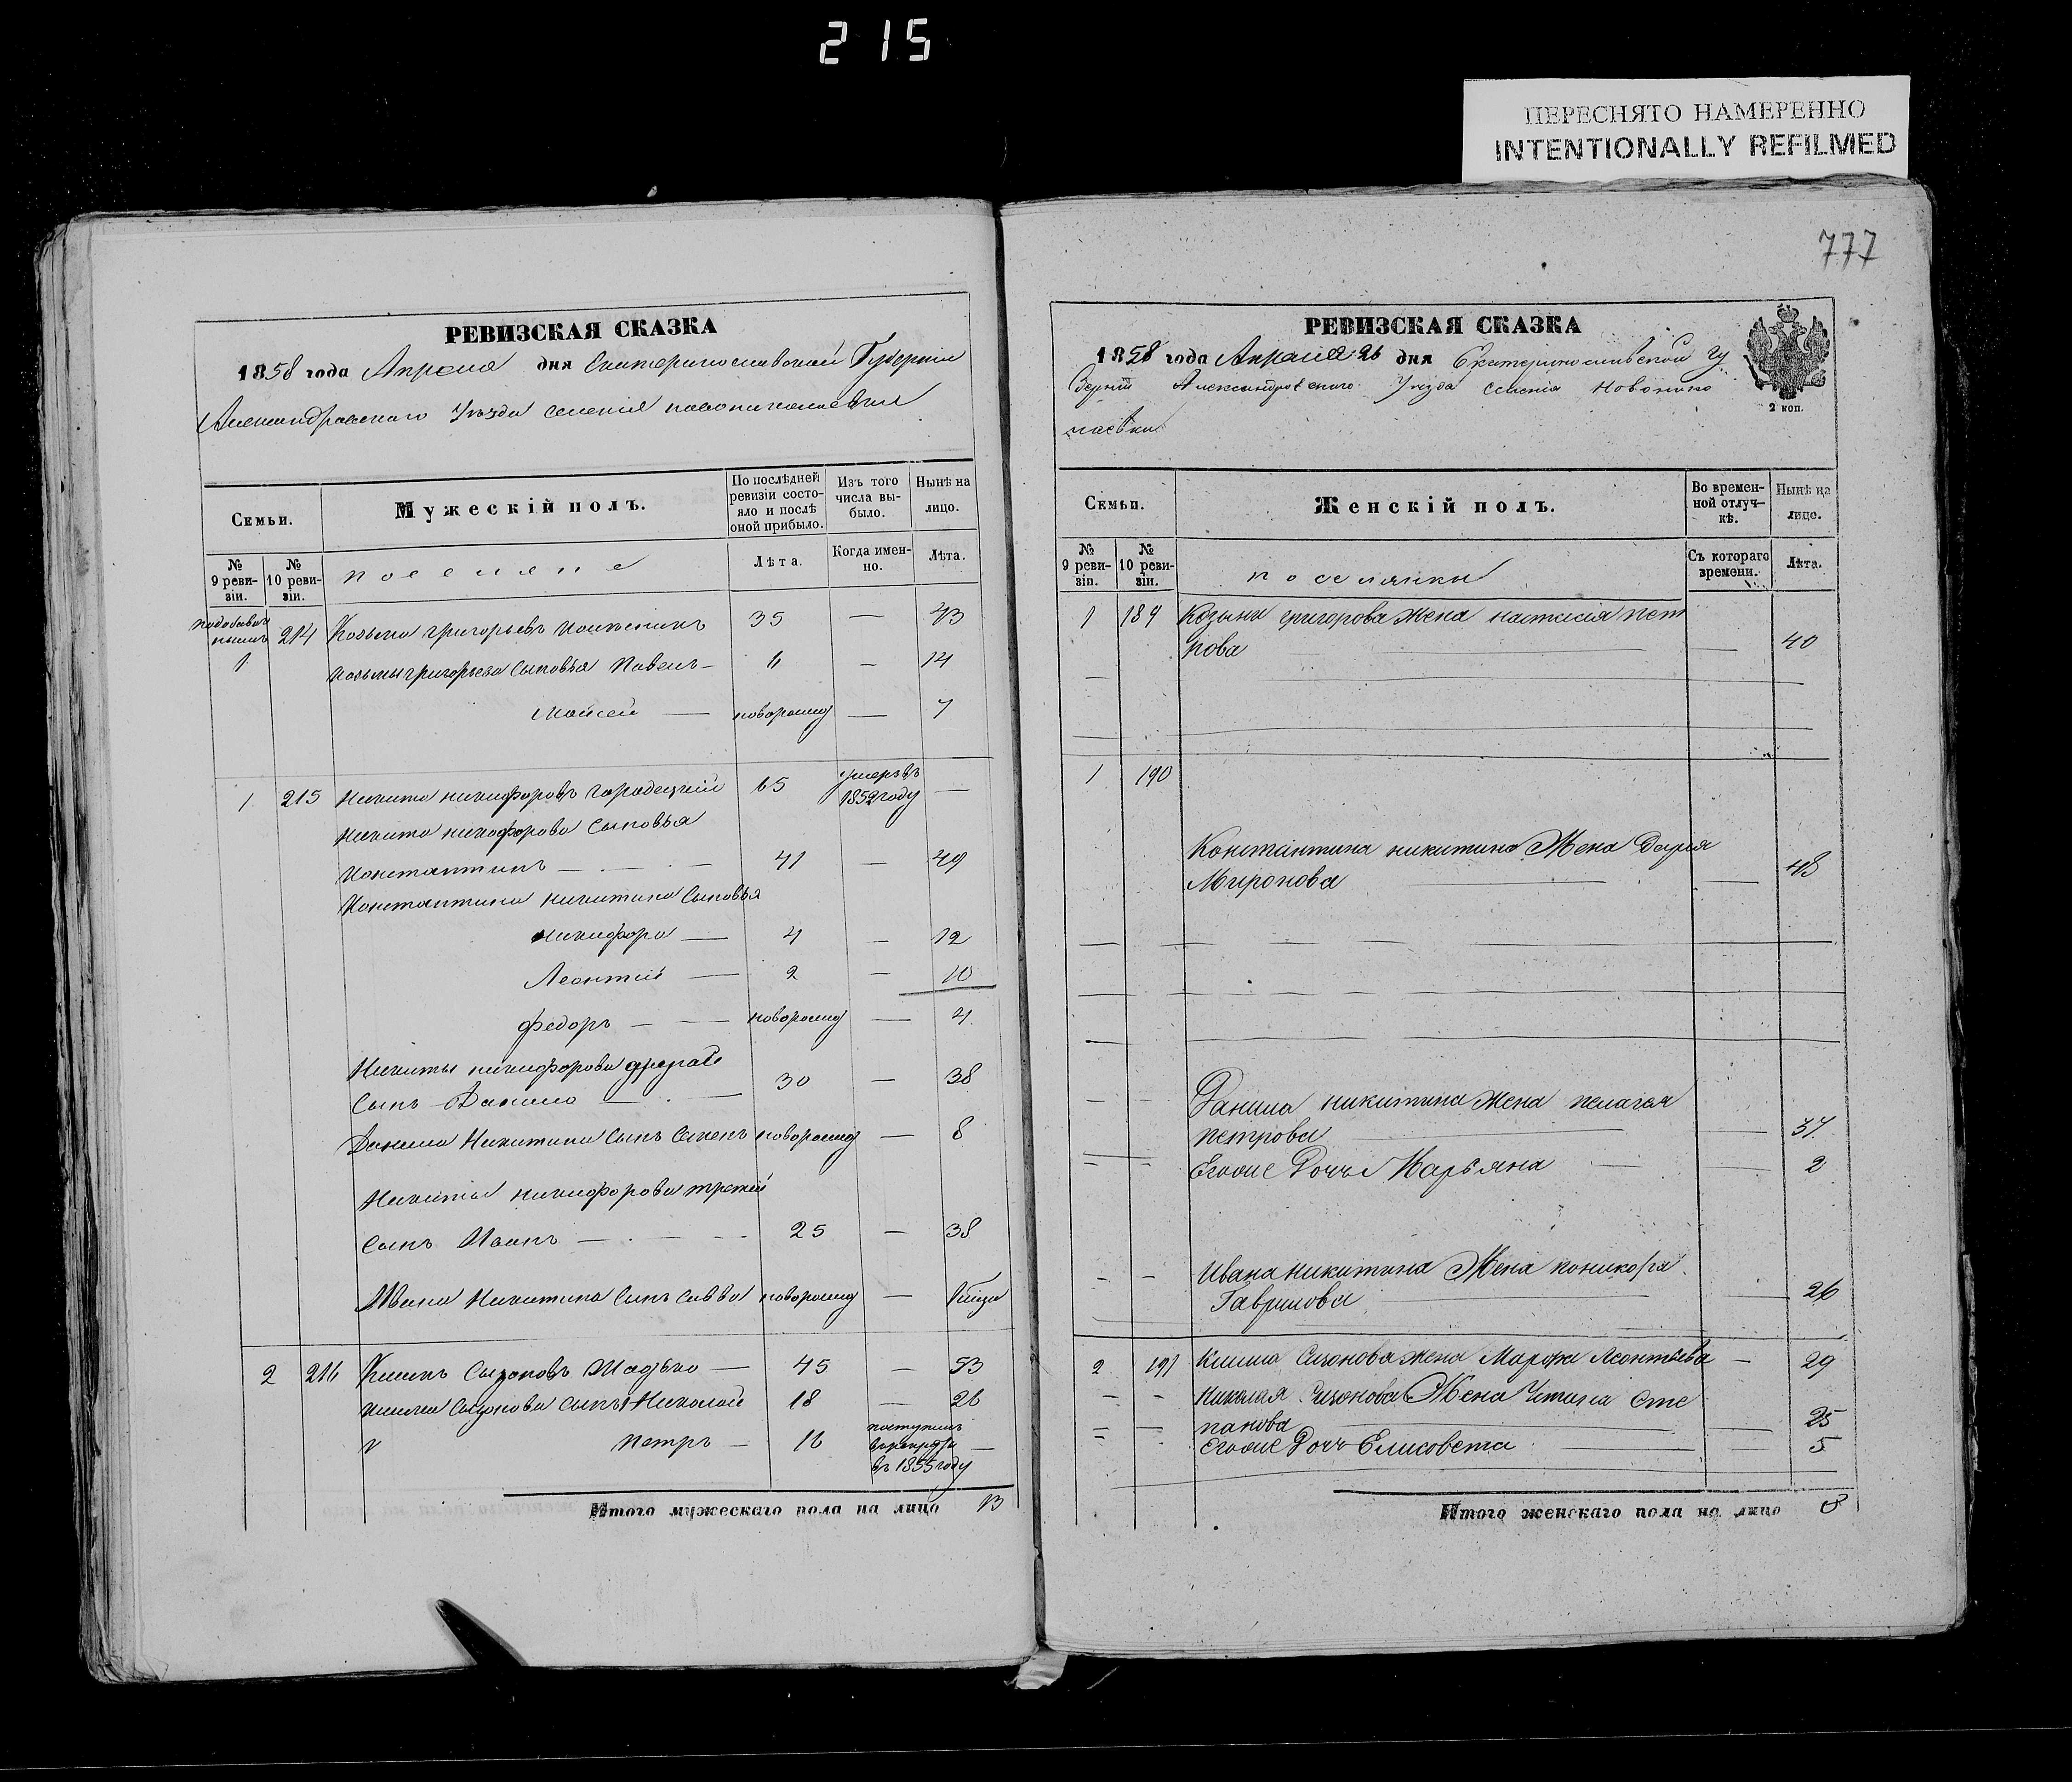 215
ПЕРЕСНЯТО НАМЕРЕННО
INTENTIONALLY REFILMED
РЕВИЗСКАЯ СКАЗКА
1858 года Апреля дня Екатеринославской Губерніи
Александровского Уезда селенія новониколаевки
Семьи.
Мужескій полъ.
По послѣдней ревизіи состояло и послѣ оной прибыло.
Изъ того числа выбыло.
Нынѣ на лицо.
№ 9 ревизіи.
№ 10 ревизіи.
поселяне
Лѣта.
Когда именно.
Лѣта.
214 Козьма григорьевъ 35 — 43
1 Козьмы григорьева сыновья Павелъ — 6 — 14
Мойсей — новорожд — 7
1 215 Никита никифоровъ городецкій 65 умеръ въ 1852 году —
Никиты никифорова сыновья
Константинъ — 41 — 49
Константина никитина сыновья
никифоръ — 4 — 12
Леонтій — 2 — 10
федоръ — новорожд — 4
Никиты никифорова другой
сынъ Данило — 30 — 38
Данила Никитина сынъ новорожд — 8
Никиты никифорова третій
сынъ Иванъ — 25 — 38
Ивана Никитина сынъ савва новорожд —
2 216 Климъ — 45 — 53
Клима сынъ Николай 18 — 26
Петръ — 16 поступилъ в рекруты въ 1855 году —
Итого мужескаго пола на лицо 13
777
РЕВИЗСКАЯ СКАЗКА
1858 года Апреля 26 дня Екатеринославской гу
берній Александровского Уезда селенія Новонико
лаевки
2 коп.
Семьи.
Женскій полъ.
Во временной отлучкѣ.
Нынѣ на лицо.
№ 9 ревизіи.
№ 10 ревизіи.
поселянки
Съ котораго времени.
Лѣта.
1 189 Козьмы григорова жена настасія пет
рова — 40
1 190
Константина никитина Жена Дарія
Миронова — 48
Данила никитина жена пелагея
петрова — 37
Егоже дочь Марьяна — 2
Ивана никитина Жена
Гаврилова — 26
2 191 Клима жена Марфа Леонтьева — 29
Николая Жена Сте
панова — 25
егоже дочь Елисовета — 5
Итого женскаго пола на лицо 8